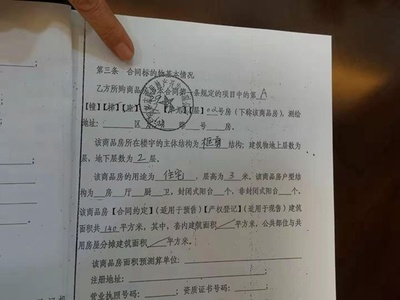 第三条 合同标的物基本情况
乙方所购商品 合同第一条规定的项目中的第 A
【幢】【梯】【座】 【单元】【层】 号房（下称该商品房），测绘
地址： 区 路 号 房。
该商品房所在楼宇的主体结构为 框剪 结构；建筑物地上层数为
层，地下层数为 2 层。
该商品房的用途为 住宅 ，层高为 3 米，该商品房户型
结构为 房 厅 厨 卫，封闭式阳台 个，非封闭式阳台 个。
该商品房【合同约定】（适用于预售）【产权登记】（适用于现售）建筑
面积共 140 平方米，其中，套内建筑面积 平方米，公共部位与共
用房屋分摊建筑面积 平方米。
该商品房面积预测算单位：
注册地址：
营业执照号码： 资质证书号码：